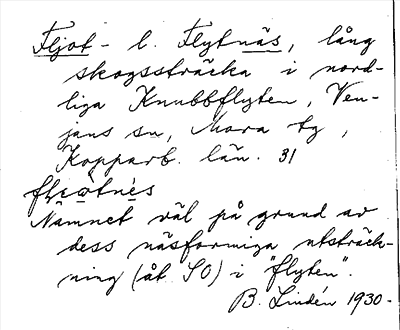 Fljot- l. Flytnäs, lång
skogssträcka i nord-
liga Knubbflyten, Ven-
jans sn, Mora tg,
Kopparb. län. 31
Namnet väl på grund av
dess näsformiga utsträck-
ning (åt SO) i "flyten".
B. Lindén 1930.